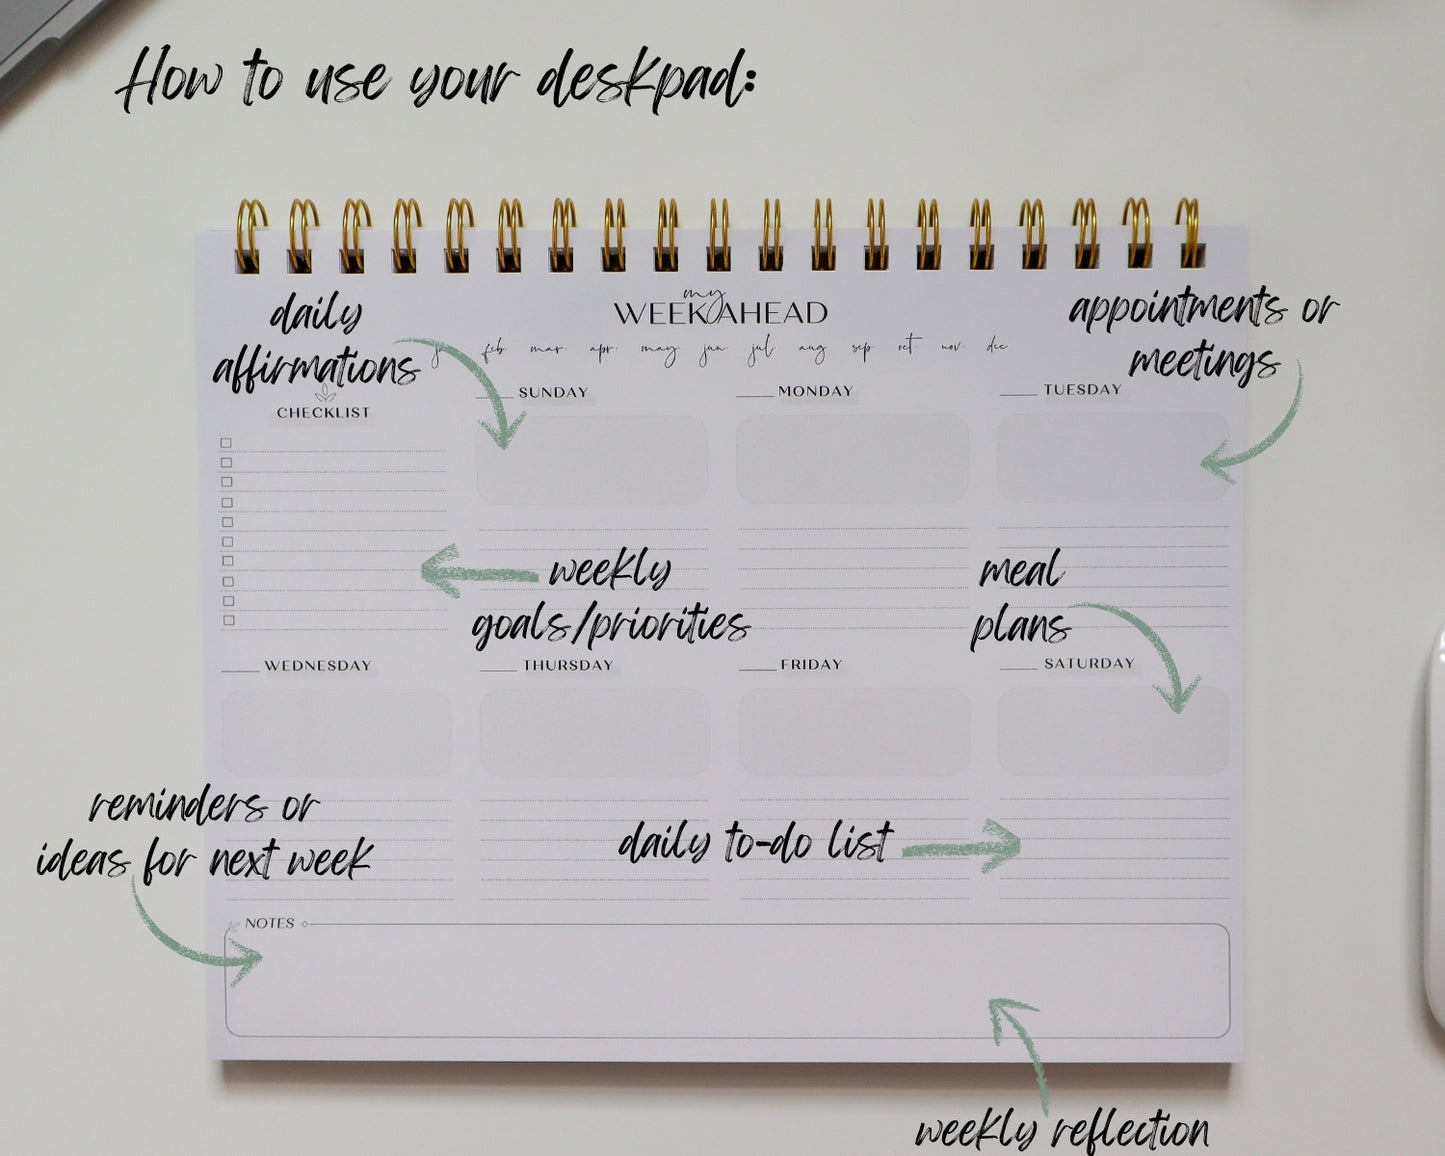 How to use your deskpad:
my
WEEK AHEAD
feb mar. apr. may jun jul aug sep oct nov. dec
daily
affirmations
appointments or
meetings
CHECKLIST
SUNDAY
MONDAY
TUESDAY
weekly
goals/priorities
meal
plans
WEDNESDAY
THURSDAY
FRIDAY
SATURDAY
reminders or
ideas for next week
daily to-do list
NOTES
weekly reflection